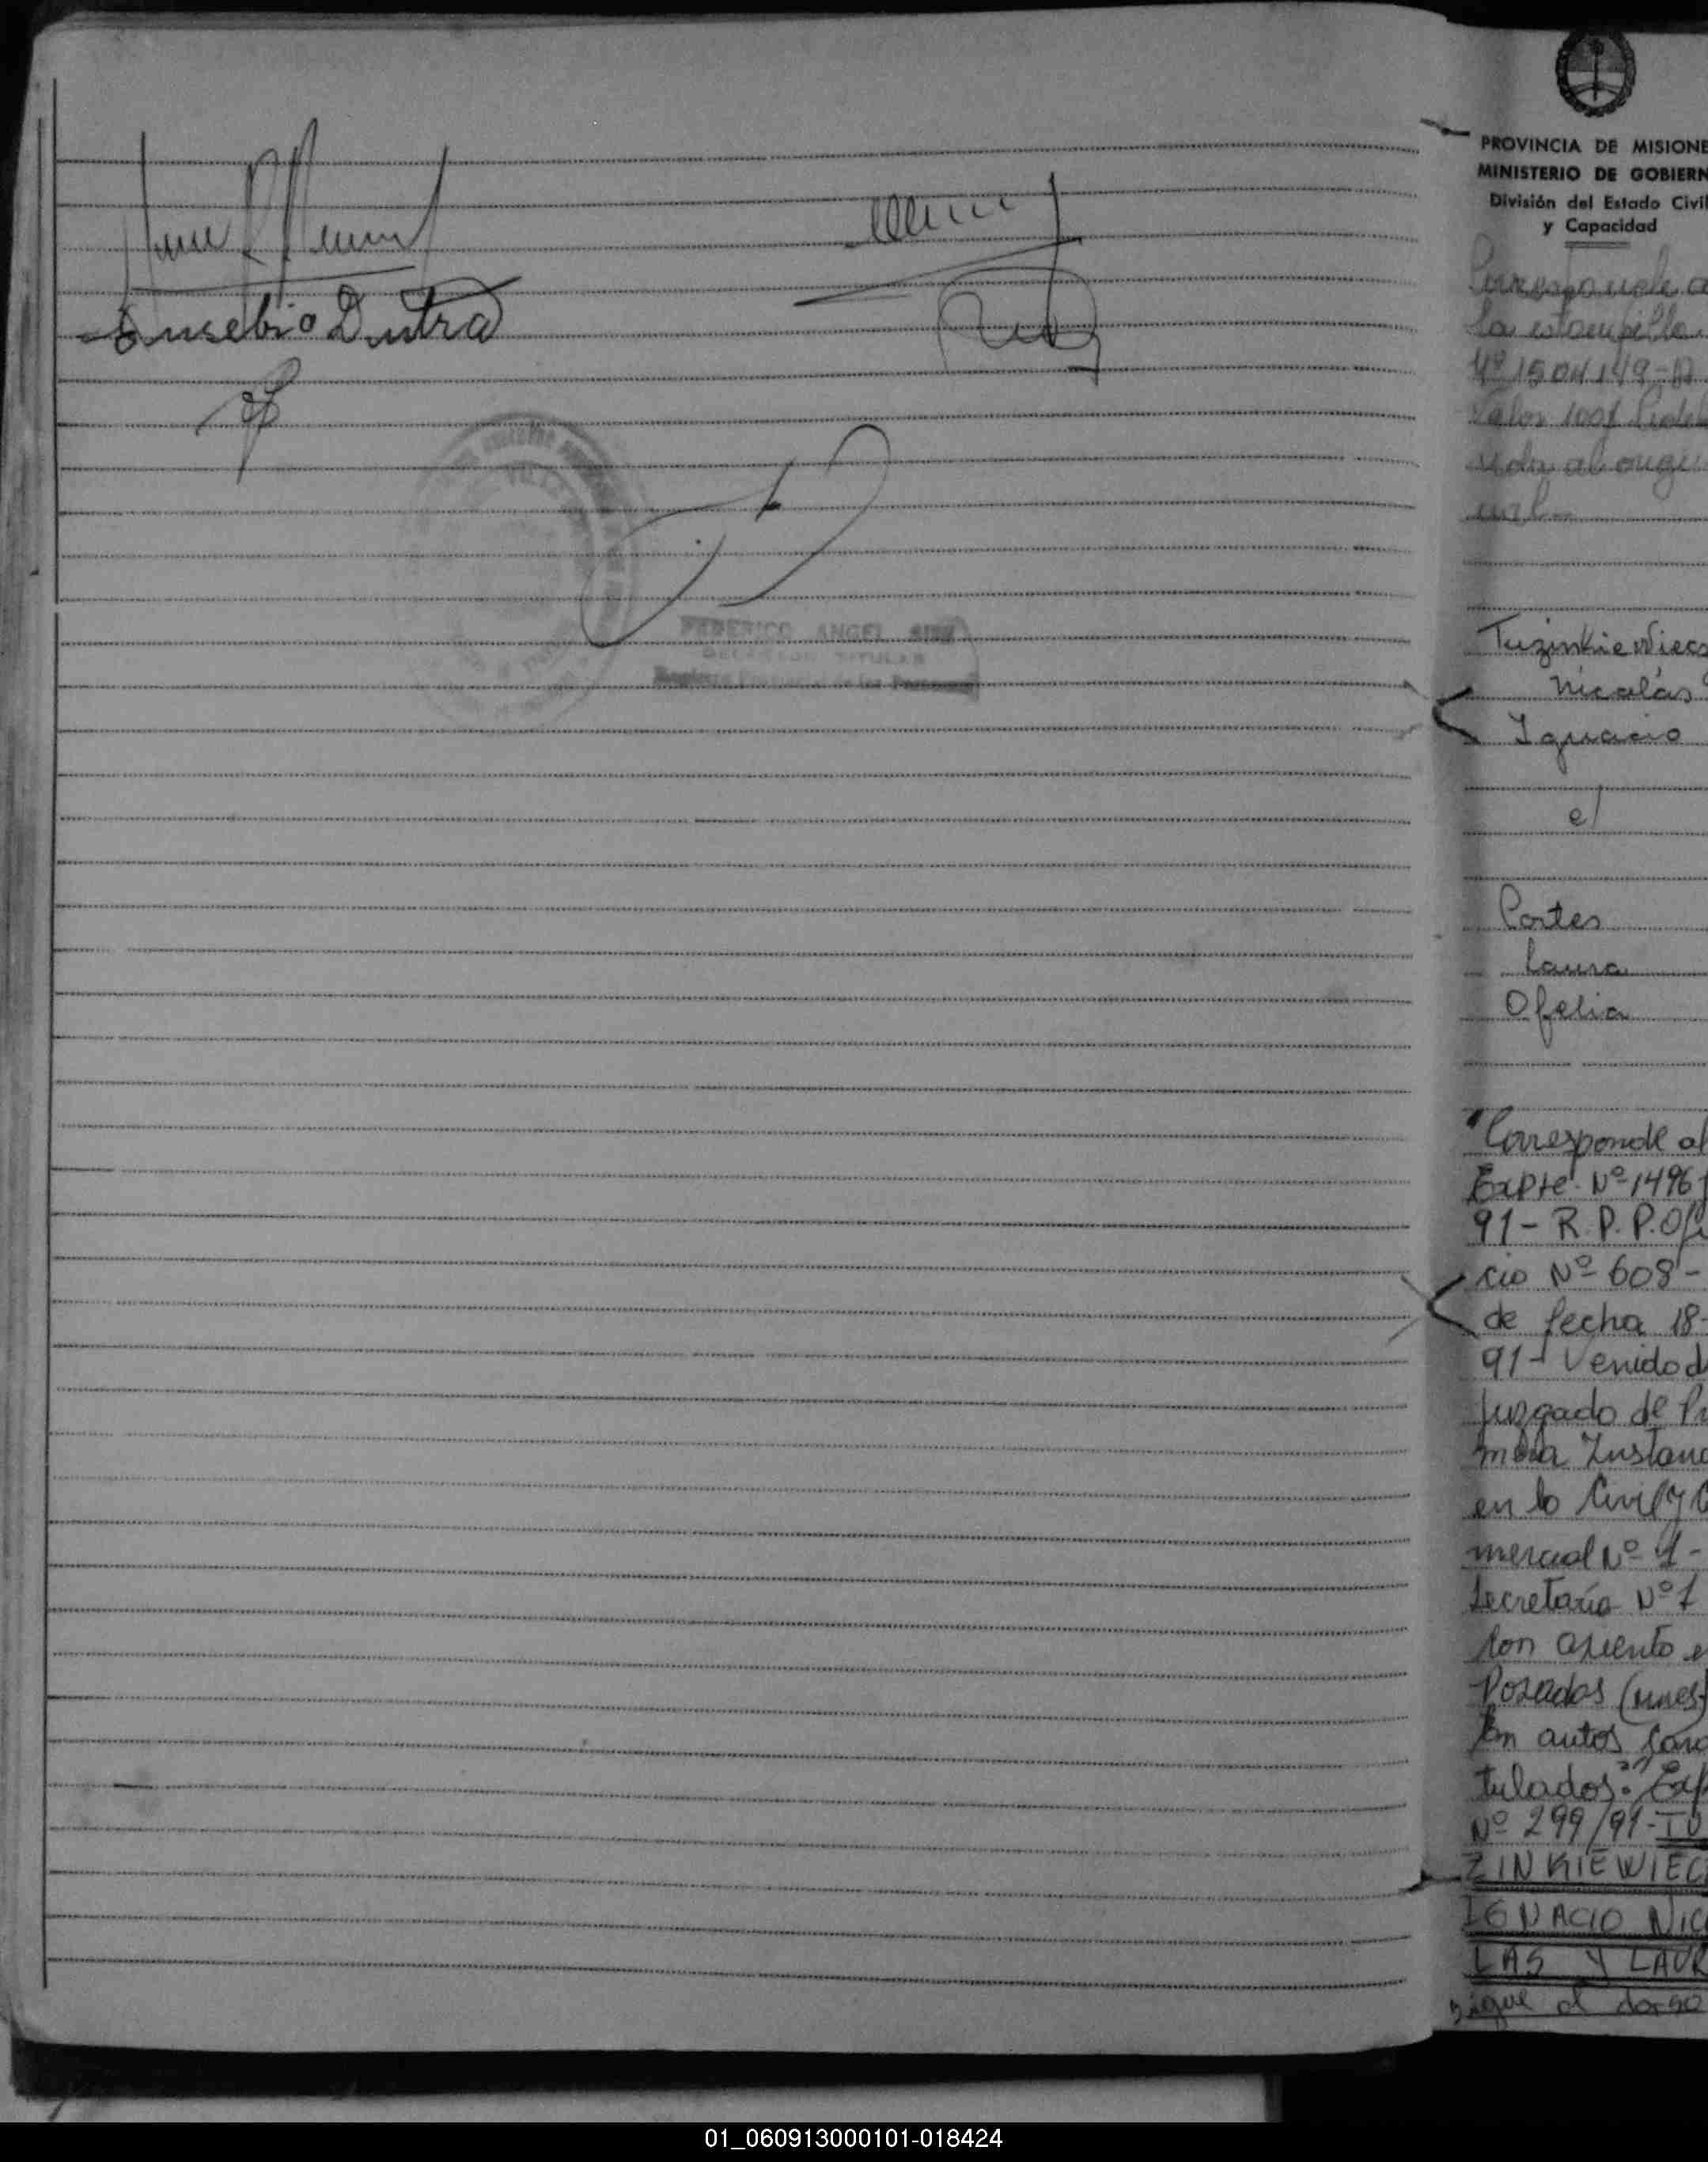 Eusebio Dutra
FEDERICO ANGEL
TITULAR
PROVINCIA DE MISIONE
MINISTERIO DE GOBIERN
División del Estado Civil
y Capacidad
Corresponde a
la estampilla
Nº 1504149-A
Valor 100$
al origi
nal.-
Tuzinkiewiecz
Nicolás
Ignacio
c/
Cortes
Laura
Ofelia
"Corresponde al
Expte. Nº 1496/
91- R.P.P. Ofi
cio Nº 608-
de fecha 18-
91- Venido d
Juzgado de Pr
mera Instanc
en lo Civil y C
mercial Nº 1-
Secretaría Nº 1
con asiento e
Posadas (mnes)
En autos cara
tulados: "Exp
Nº 299/91- TU
ZINKIEWIEC
IGNACIO NICO
LAS Y LAUR
sigue al dorso
01_060913000101-018424